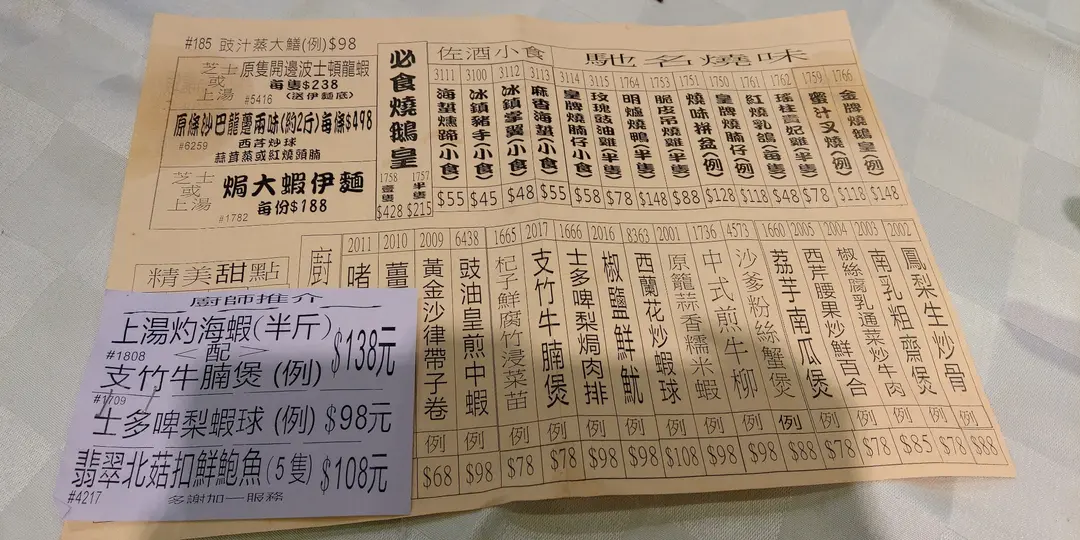 #185 豉汁蒸大鱔(例)$98
芝士或上湯
原隻開邊波士頓龍蝦
每隻$238
#5416 (送伊麵底)
原條沙巴龍躉兩味(約2斤)每條$498
#6259 西芹炒球
蒜茸蒸或紅燒頭腩
芝士或上湯
焗大蝦伊麵
#1782 每份$188
必食燒鵝皇
1758 壹隻 $428
1757 半隻 $215
佐酒小食
3111 海蜇燻蹄(小食) $55
3100 冰鎮豬手(小食) $45
3112 冰鎮掌翼(小食) $48
3113 麻香海蜇(小食) $55
馳名燒味
3114 皇牌燒腩仔(小食) $58
3115 玫瑰豉油雞(半隻) $78
1764 明爐燒鴨(半隻) $148
1753 脆皮吊燒雞(半隻) $88
1751 燒味拼盆(例) $128
1750 皇牌燒腩仔(例) $118
1761 紅燒乳鴿(每隻) $48
1762 瑤柱貴妃雞(半隻) $78
1759 蜜汁叉燒(例) $118
1766 金牌燒鵝皇(例) $148
精美甜點
廚
2011 啫
2010 薑
2009 黃金沙律帶子卷 例 $68
6438 豉油皇煎中蝦 例 $98
1665 杞子鮮腐竹浸菜苗 例 $78
2017 支竹牛腩煲 例 $78
1666 士多啤梨焗肉排 例 $98
2016 椒鹽鮮魷 例 $98
8363 西蘭花炒蝦球 例 $108
2001 原籠蒜香糯米蝦 例 $98
1736 中式煎牛柳 例 $98
4573 沙爹粉絲蟹煲 例 $88
1660 荔芋南瓜煲 例 $78
2005 西芹腰果炒鮮百合 例 $78
2004 椒絲腐乳通菜炒牛肉 例 $85
2003 南乳粗齋煲 例 $78
2002 鳳梨生炒骨 例 $88
廚師推介
上湯灼海蝦(半斤)
#1808 <配> $138元
支竹牛腩煲(例)
#1709
士多啤梨蝦球(例) $98元
翡翠北菇扣鮮鮑魚(5隻) $108元
#4217 多謝加一服務